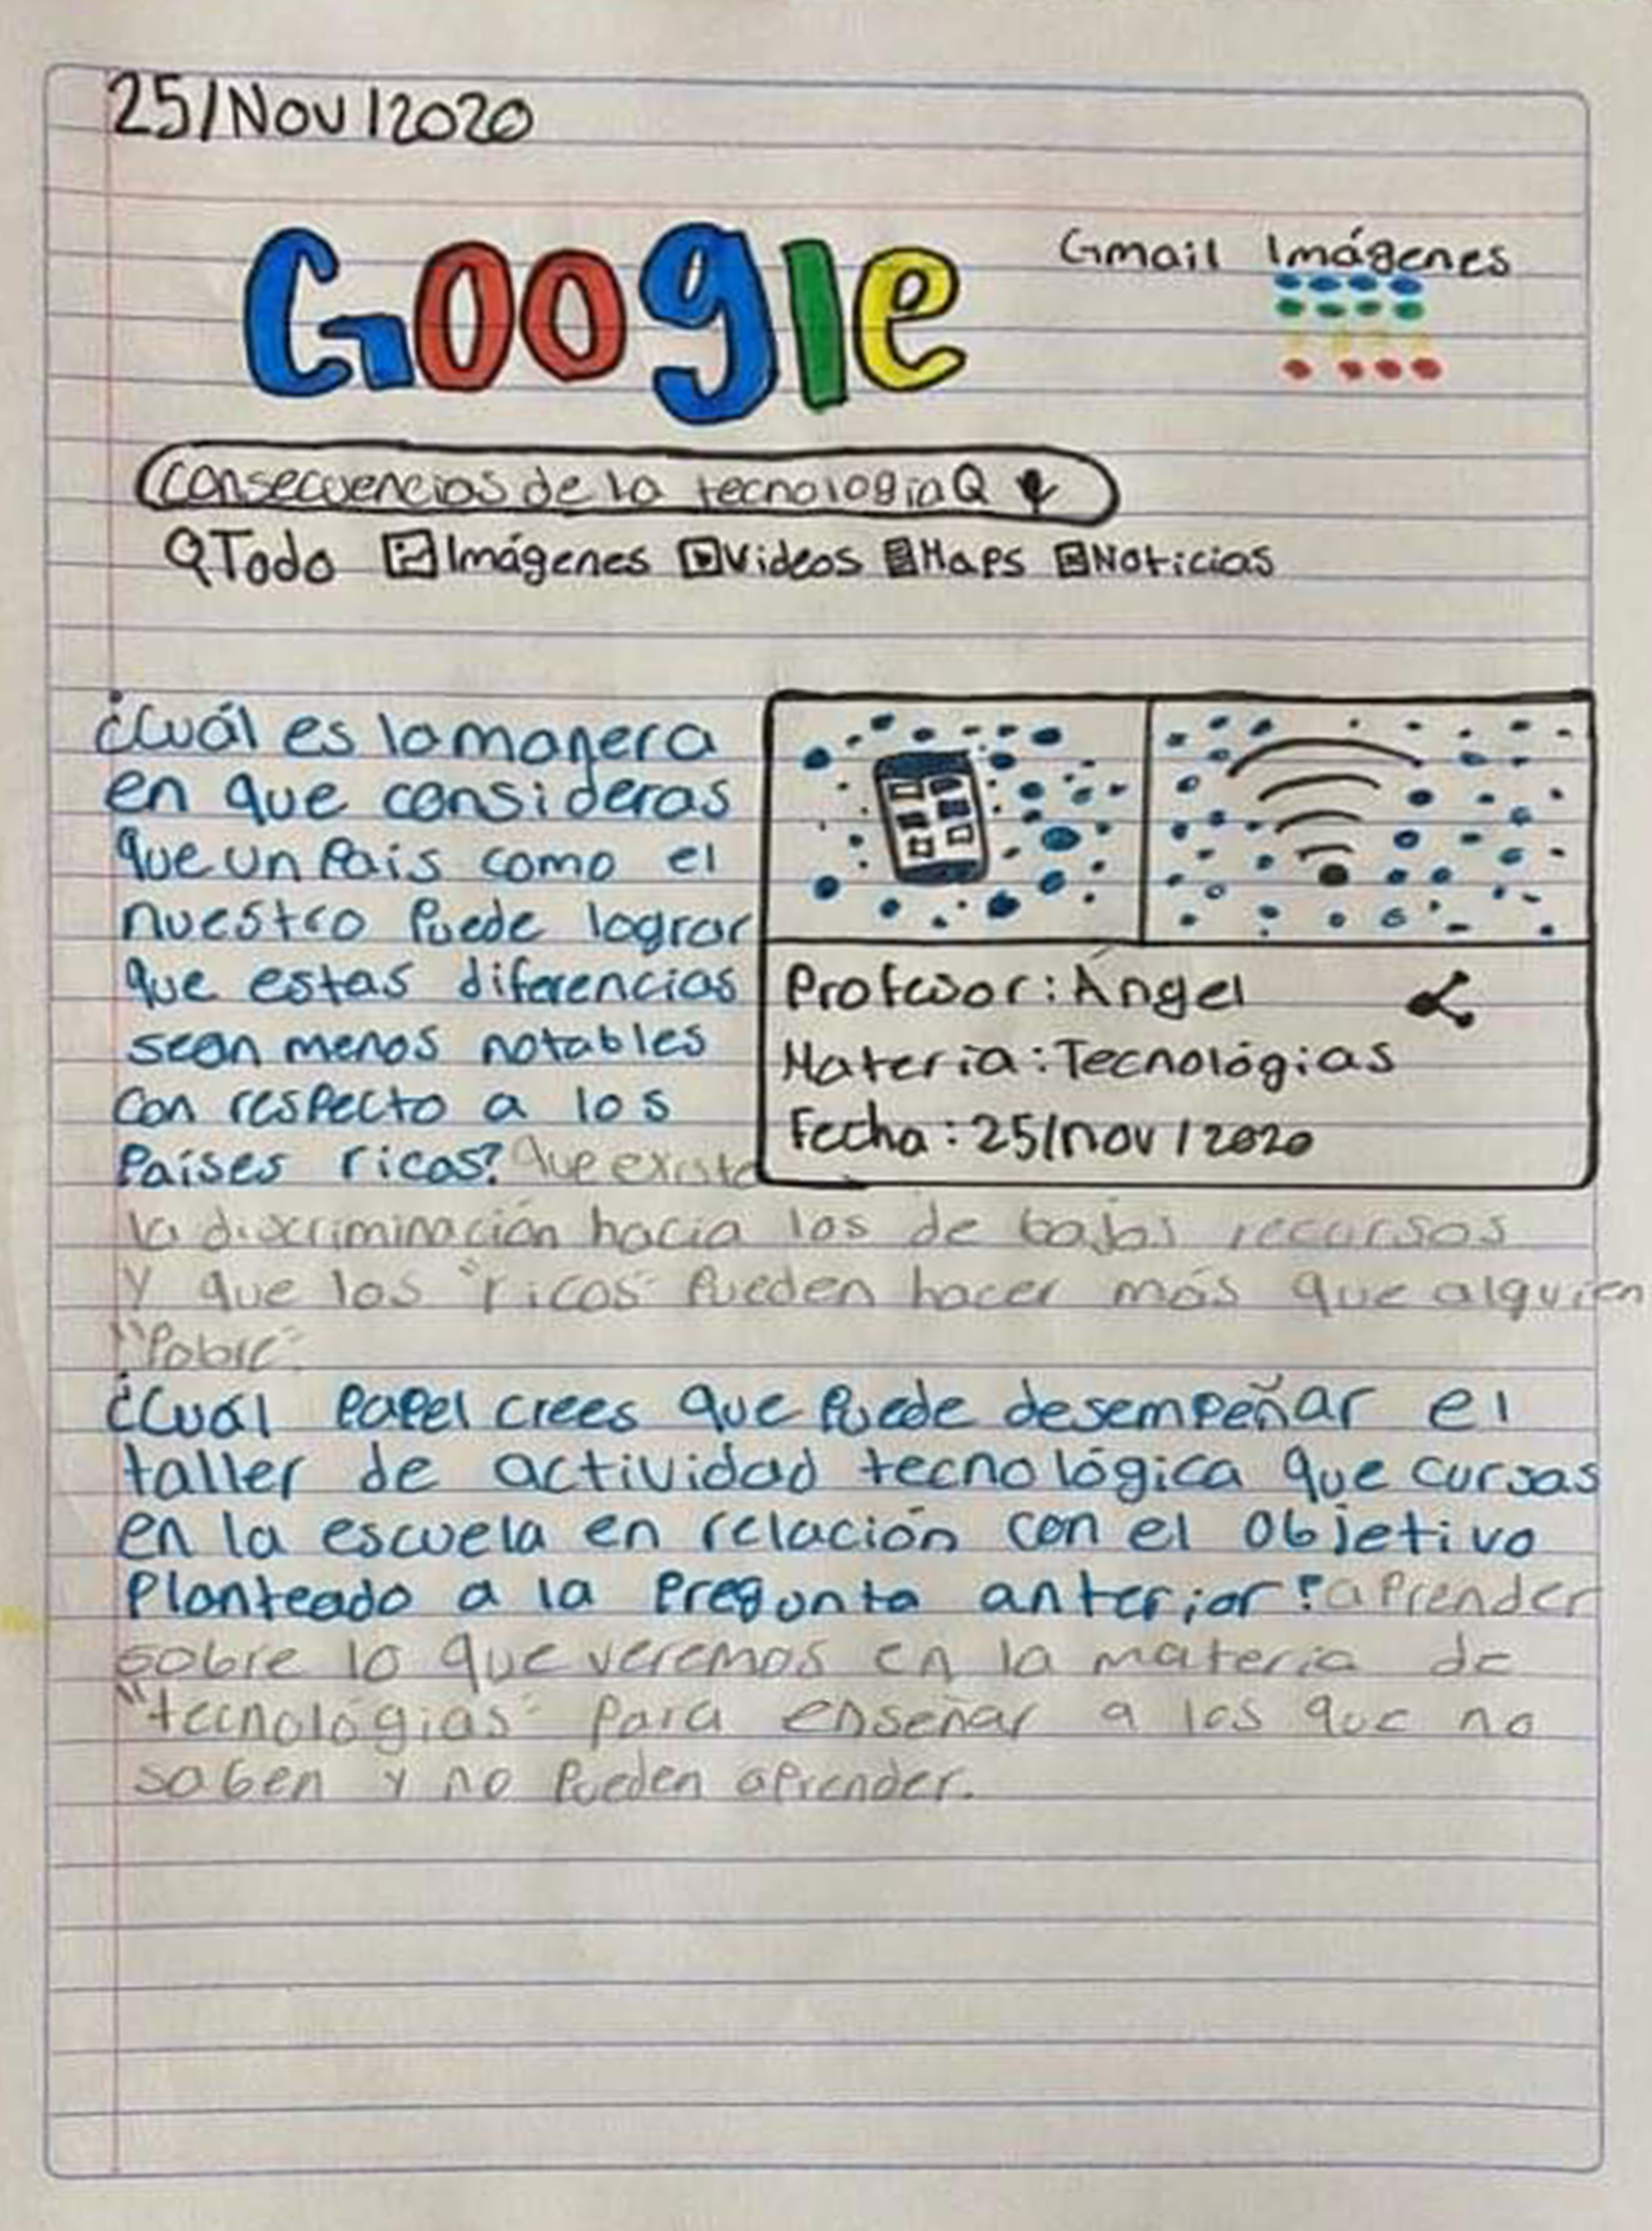 25/Nov/2020
Google
Gmail Imágenes
consecuencias de la tecnologia
Todo Imágenes Videos Maps Noticias
¿Cuál es la manera
en que consideras
que un País como el
nuestro Puede lograr
que estas diferencias
sean menos notables
con respecto a los
Países ricos? que existe
Profesor: Ángel
Materia: Tecnológias
Fecha: 25/nov/2020
la discriminación hacia los de bajos recursos
y que los "ricos" Pueden hacer más que alguien
"Pobre".
¿Cuál Papel crees que Puede desempeñar el
taller de actividad tecnológica que cursas
en la escuela en relación con el objetivo
Planteado a la Pregunta anterior? aprender
sobre lo que veremos en la materia de
"tecnológias" Para enseñar a los que no
saben y no Pueden aprender.